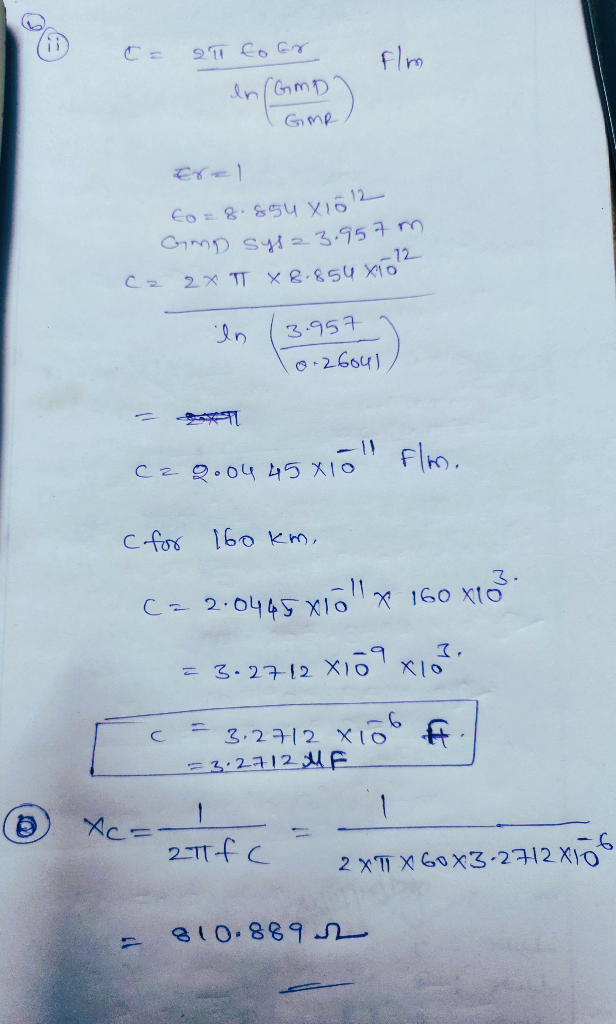 b
ii C = 2π ε0 εr F/m
ln (GMD
GMR)
εr = 1
ε0 = 8.854 X10^-12
GMD sys = 3.957 m
C = 2 x π x 8.854 x10^-12
ln (3.957
0.26041)
=
C = 2.0445 X10^-11 F/m.
C for 160 km.
C = 2.0445 x10^-11 x 160 x10^3.
= 3.2712 X10^-9 x10^3.
C = 3.2712 x10^-6 F.
= 3.2712 μF
Xc = 1 = 1
2πfC 2 xπ x 60 x 3.2712 x10^-6
= 810.889 Ω